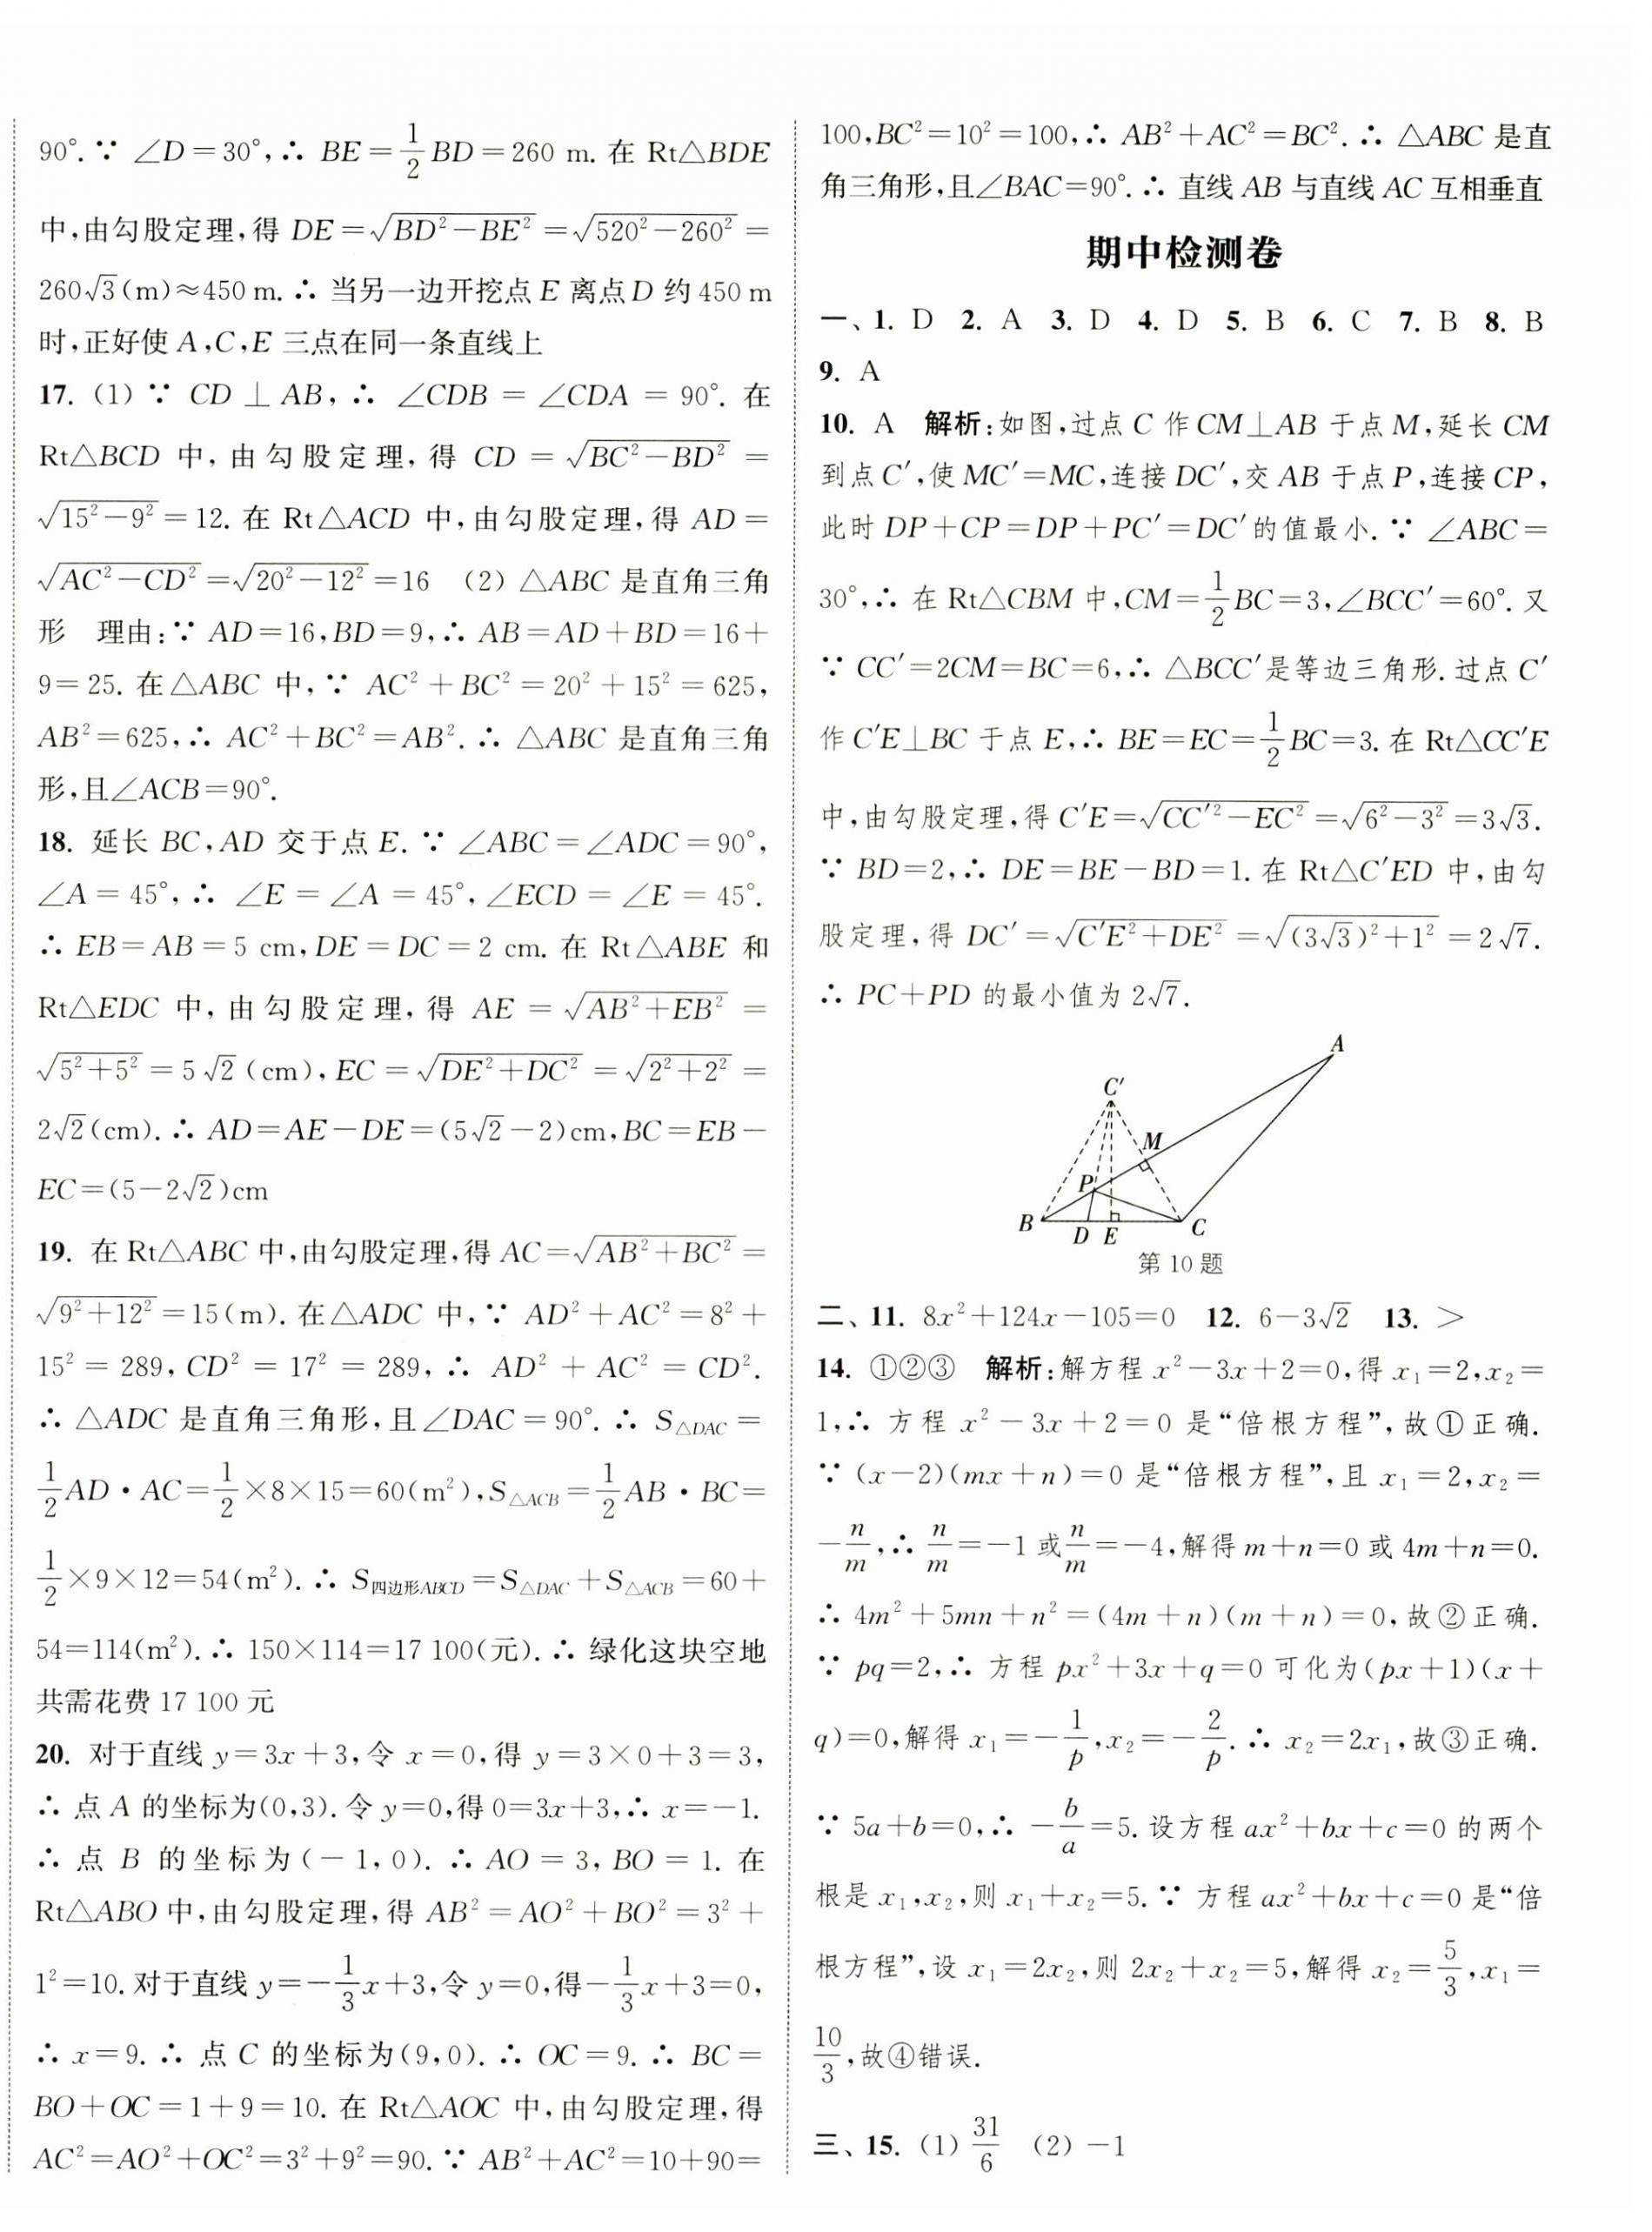 90°.∵ ∠D=30°,∴ BE=1/2 BD=260 m. 在 Rt△BDE
中,由勾股定理,得 DE=√(BD²-BE²)=√(520²-260²)=
260√3(m)≈450 m.∴ 当另一边开挖点 E 离点 D 约 450 m
时,正好使 A,C,E 三点在同一条直线上
17. (1) ∵ CD⊥AB,∴ ∠CDB=∠CDA=90°. 在
Rt△BCD 中,由勾股定理,得 CD=√(BC²-BD²)=
√(15²-9²)=12. 在 Rt△ACD 中,由勾股定理,得 AD=
√(AC²-CD²)=√(20²-12²)=16 (2) △ABC 是直角三角
形 理由:∵ AD=16,BD=9,∴ AB=AD+BD=16+
9=25. 在△ABC 中,∵ AC²+BC²=20²+15²=625,
AB²=625,∴ AC²+BC²=AB².∴ △ABC 是直角三角
形,且∠ACB=90°.
18. 延长 BC,AD 交于点 E.∵ ∠ABC=∠ADC=90°,
∠A=45°,∴ ∠E=∠A=45°,∠ECD=∠E=45°.
∴ EB=AB=5 cm,DE=DC=2 cm. 在 Rt△ABE 和
Rt△EDC 中,由勾股定理,得 AE=√(AB²+EB²)=
√(5²+5²)=5√2(cm),EC=√(DE²+DC²)=√(2²+2²)=
2√2(cm).∴ AD=AE-DE=(5√2-2)cm,BC=EB-
EC=(5-2√2)cm
19. 在 Rt△ABC 中,由勾股定理,得 AC=√(AB²+BC²)=
√(9²+12²)=15(m). 在△ADC 中,∵ AD²+AC²=8²+
15²=289,CD²=17²=289,∴ AD²+AC²=CD².
∴ △ADC 是直角三角形,且∠DAC=90°.∴ S△DAC=
1/2 AD·AC=1/2×8×15=60(m²),S△ACB=1/2 AB·BC=
1/2×9×12=54(m²).∴ S四边形ABCD=S△DAC+S△ACB=60+
54=114(m²).∴ 150×114=17 100(元).∴ 绿化这块空地
共需花费 17 100 元
20. 对于直线 y=3x+3,令 x=0,得 y=3×0+3=3,
∴ 点 A 的坐标为(0,3). 令 y=0,得 0=3x+3,∴ x=-1.
∴ 点 B 的坐标为(-1,0).∴ AO=3,BO=1. 在
Rt△ABO 中,由勾股定理,得 AB²=AO²+BO²=3²+
1²=10. 对于直线 y=-1/3 x+3,令 y=0,得-1/3 x+3=0,
∴ x=9.∴ 点 C 的坐标为(9,0).∴ OC=9.∴ BC=
BO+OC=1+9=10. 在 Rt△AOC 中,由勾股定理,得
AC²=AO²+OC²=3²+9²=90.∵ AB²+AC²=10+90=
100,BC²=10²=100,∴ AB²+AC²=BC².∴ △ABC 是直
角三角形,且∠BAC=90°.∴ 直线 AB 与直线 AC 互相垂直
期中检测卷
一、1. D 2. A 3. D 4. D 5. B 6. C 7. B 8. B
9. A
10. A 解析:如图,过点 C 作 CM⊥AB 于点 M,延长 CM
到点 C′,使 MC′=MC,连接 DC′,交 AB 于点 P,连接 CP,
此时 DP+CP=DP+PC′=DC′的值最小.∵ ∠ABC=
30°,∴ 在 Rt△CBM 中,CM=1/2 BC=3,∠BCC′=60°. 又
∵ CC′=2CM=BC=6,∴ △BCC′是等边三角形. 过点 C′
作 C′E⊥BC 于点 E,∴ BE=EC=1/2 BC=3. 在 Rt△CC′E
中,由勾股定理,得 C′E=√(CC′²-EC²)=√(6²-3²)=3√3.
∵ BD=2,∴ DE=BE-BD=1. 在 Rt△C′ED 中,由勾
股定理,得 DC′=√(C′E²+DE²)=√((3√3)²+1²)=2√7.
∴ PC+PD 的最小值为 2√7.
A
C′
M
P
B
D E
C
第 10 题
二、11. 8x²+124x-105=0 12. 6-3√2 13. >
14. ①②③ 解析:解方程 x²-3x+2=0,得 x₁=2,x₂=
1,∴ 方程 x²-3x+2=0 是“倍根方程”,故①正确.
∵ (x-2)(mx+n)=0 是“倍根方程”,且 x₁=2,x₂=
-n/m,∴ n/m=-1 或 n/m=-4,解得 m+n=0 或 4m+n=0.
∴ 4m²+5mn+n²=(4m+n)(m+n)=0,故②正确.
∵ pq=2,∴ 方程 px²+3x+q=0 可化为(px+1)(x+
q)=0,解得 x₁=-1/p,x₂=-2/p.∴ x₂=2x₁,故③正确.
∵ 5a+b=0,∴ -b/a=5. 设方程 ax²+bx+c=0 的两个
根是 x₁,x₂,则 x₁+x₂=5.∵ 方程 ax²+bx+c=0 是“倍
根方程”,设 x₁=2x₂,则 2x₂+x₂=5,解得 x₂=5/3,x₁=
10/3,故④错误.
三、15. (1) 31/6 (2) -1